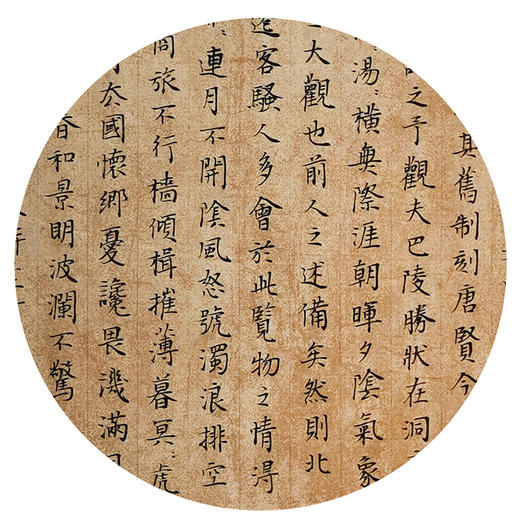 其舊制刻唐賢今
之予觀夫巴陵勝狀在洞
湯湯橫無際涯朝暉夕陰氣象
大觀也前人之述備矣然則北
遷客騷人多會於此覽物之情淂
連月不開陰風怒號濁浪排空
商旅不行檣傾楫摧薄暮冥冥虎
去國懷鄉憂讒畏譏滿目
春和景明波瀾不驚